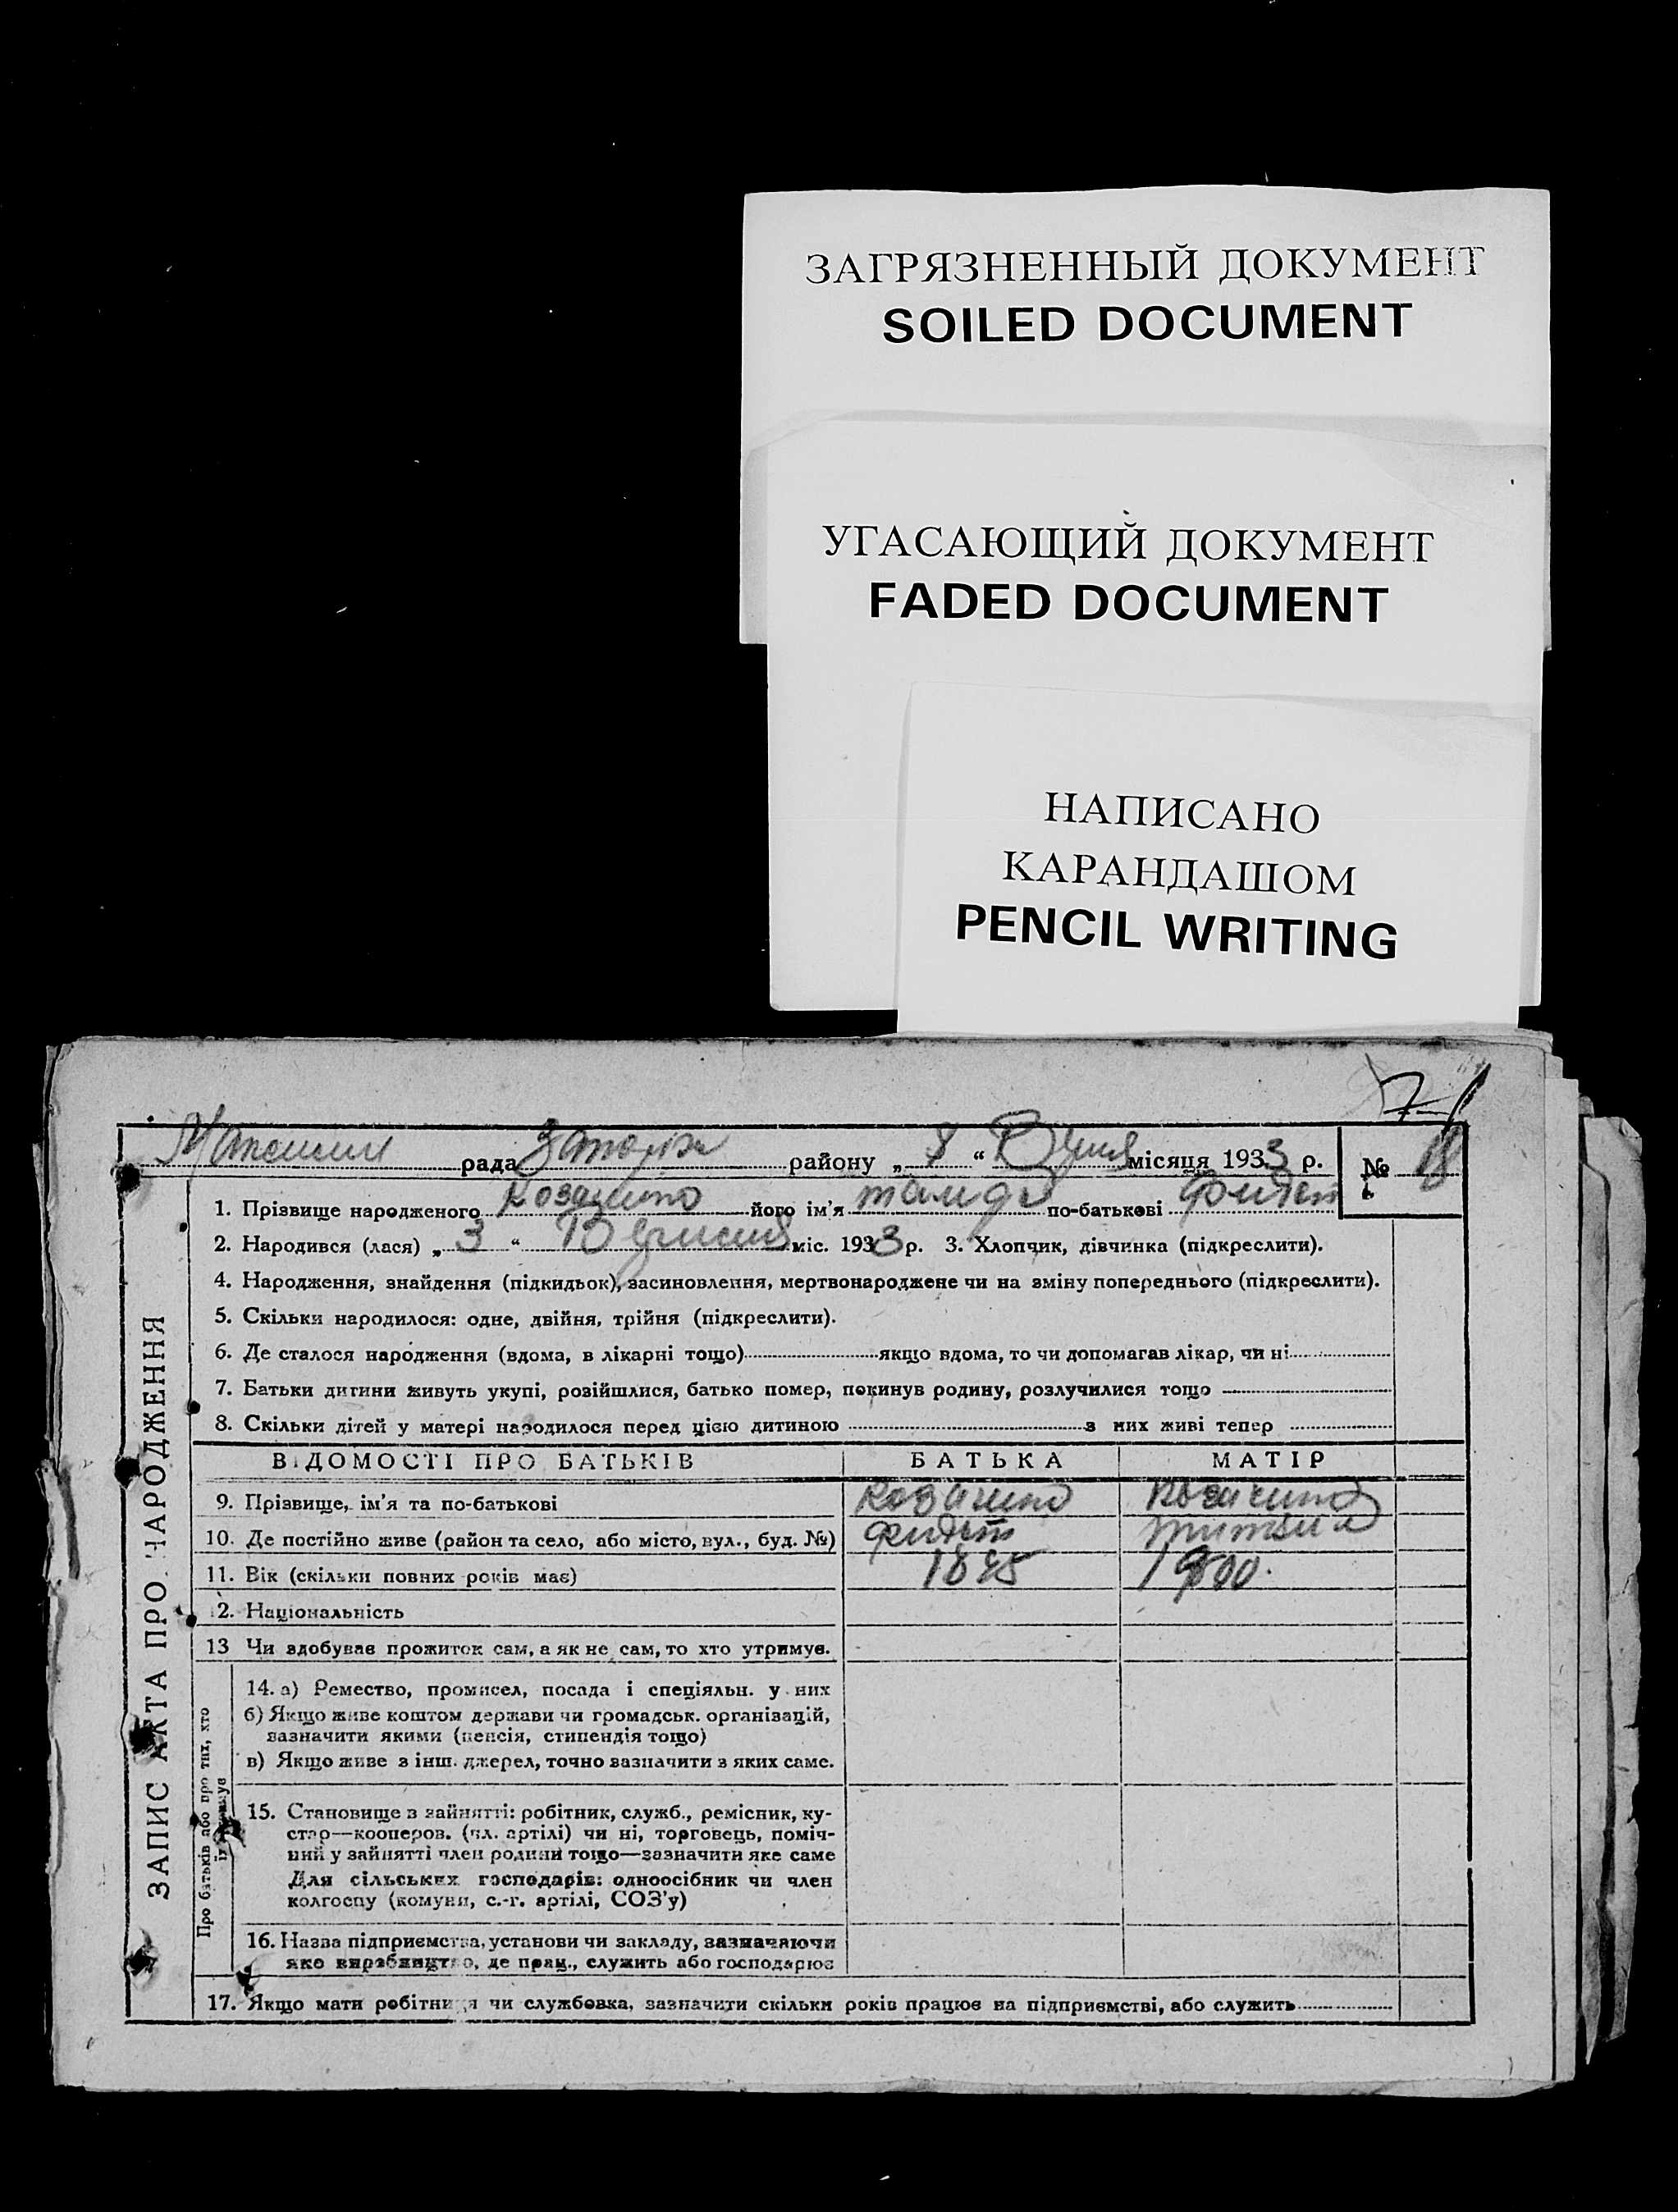 ЗАГРЯЗНЕННЫЙ ДОКУМЕНТ
SOILED DOCUMENT
УГАСАЮЩИЙ ДОКУМЕНТ
FADED DOCUMENT
НАПИСАНО
КАРАНДАШОМ
PENCIL WRITING
рада району „ 8 “ місяця 1933 р. № 18
1. Прізвище народженого його ім'я по-батькові
2. Народився (лася) „ 3 “ міс. 1933 р. 3. Хлопчик, дівчинка (підкреслити).
4. Народження, знайдення (підкидьок), засиновлення, мертвонароджене чи на зміну попереднього (підкреслити).
5. Скільки народилося: одне, двійня, трійня (підкреслити).
6. Де сталося народження (вдома, в лікарні тощо) якщо вдома, то чи допомагав лікар, чи ні
7. Батьки дитини живуть укупі, розійшлися, батько помер, покинув родину, розлучилися тощо
8. Скільки дітей у матері народилося перед цією дитиною з них живі тепер
ЗАПИС АКТА ПРО НАРОДЖЕННЯ
ВІДОМОСТІ ПРО БАТЬКІВ БАТЬКА МАТІР
9. Прізвище, ім'я та по-батькові
10. Де постійно живе (район та село, або місто, вул., буд. №)
11. Вік (скільки повних років має) 1895 1900.
12. Національність
13 Чи здобував прожиток сам, а як не сам, то хто утримув.
Про батьків або про тих, хто
їх утримує
14. а) Ремество, промисел, посада і спеціяльн. у них
б) Якщо живе коштом держави чи громадськ. організацій,
зазначити якими (пенсія, стипендія тощо)
в) Якщо живе з інш. джерел, точно зазначити з яких саме.
15. Становище в зайнятті: робітник, служб., ремісник, ку-
стар—кооперов. (чл. артілі) чи ні, торговець, поміч-
ний у зайнятті член родини тощо—зазначити яке саме
Для сільських господарів: одноосібник чи член
колгоспу (комуни, с.-г. артілі, СОЗ'у)
16. Назва підприємства, установи чи закладу, зазначаючи
яке виробництво, де прац., служить або господарює
17. Якщо мати робітниця чи службовка, зазначити скільки років працює на підприємстві, або служить